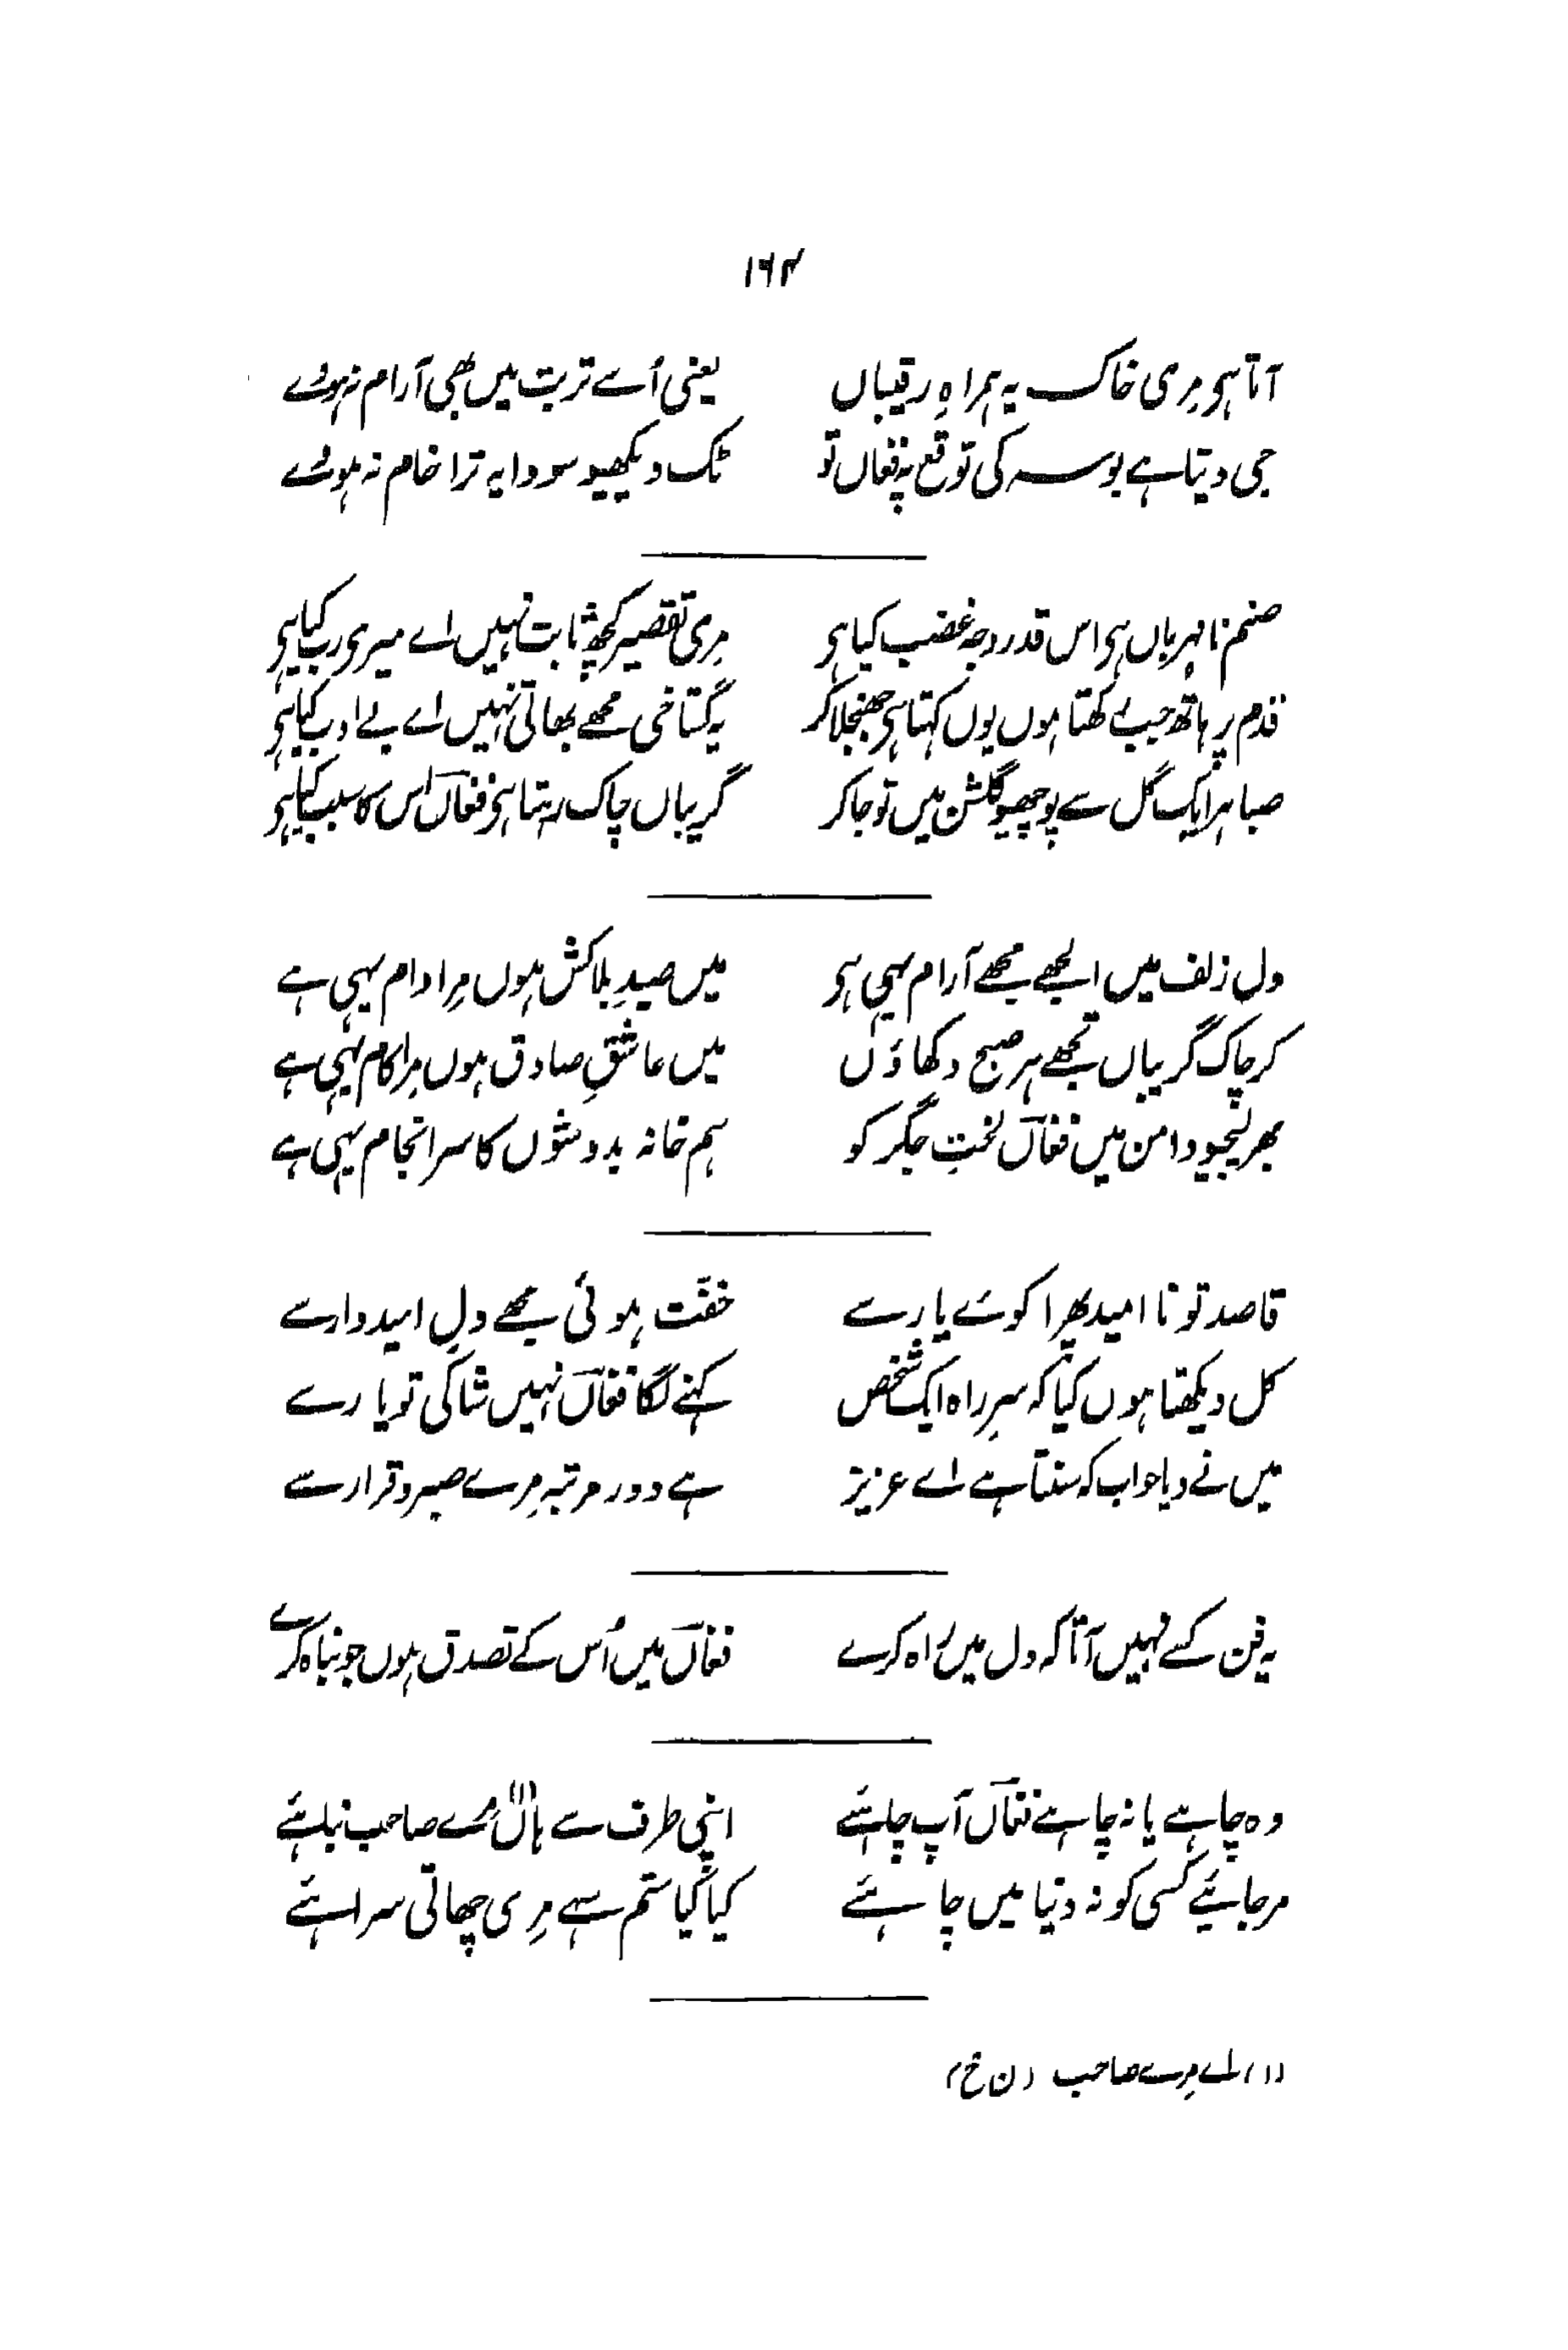 ۱۶۴
آتا ہی مِری خاک پہ ہمراہِ رقیباں یعنی اُسے تربت میں بھی آرام نہ ہووے
جی دیتا ہے بوسہ کی توقع پہ فغاں تو ٹک دیکھیو سودا یہ ترا خام نہ ہووے
صنم نامہرباں ہی اس قدر وجہ غضب کیا ہی مِری تقصیر کچھ ثابت نہیں اے میری رب کیا ہی
قدم پر ہاتھ جب رکھتا ہوں یوں کہتا ہی جھنجلا کر یہ گستاخی مجھے بھاتی نہیں اے بے ادب کیا ہی
صبا ہر ایک گل سے پوچھیو گلشن میں تو جا کر گریباں چاک رہتا ہی فغاںؔ اس کا سبب کیا ہی
دل زلف میں الجھے مجھے آرام یہی ہی میں صیدِ بلاکش ہوں مِرا دام یہی ہے
کر چاک گریباں تجھے ہر صبح دکھاؤں میں عاشقِ صادق ہوں مِرا کام یہی ہے
بھر لیجیو دامن میں فغاںؔ لختِ جگر کو ہم خانہ بدوشوں کا سرانجام یہی ہے
قاصد تو نا امید پھرا کوئے یار سے خفّت ہوئی مجھے دلِ امیدوار سے
کل دیکھتا ہوں کیا کہ سرِ راہ ایک شخص کہنے لگا فغاںؔ نہیں شاکی تو یار سے
میں نے دیا جواب کہ سنتا ہے اے عزیز ہے دور مرتبہ مِرے صبر و قرار سے
یہ فن کسے نہیں آتا کہ دل میں راہ کرے فغاںؔ میں اُس کے تصدق ہوں جو نباہ کرے
وہ چاہے یا نہ چاہے فغاںؔ آپ چاہئے اپنی طرف سے ہاں (۱) مرے صاحب نباہئے
مر جائیے کسی کو نہ دنیا میں چاہئے کیا کیا ستم سہے مِری چھاتی سراہئے
(۱) اے مِرے صاحب (ن خ)